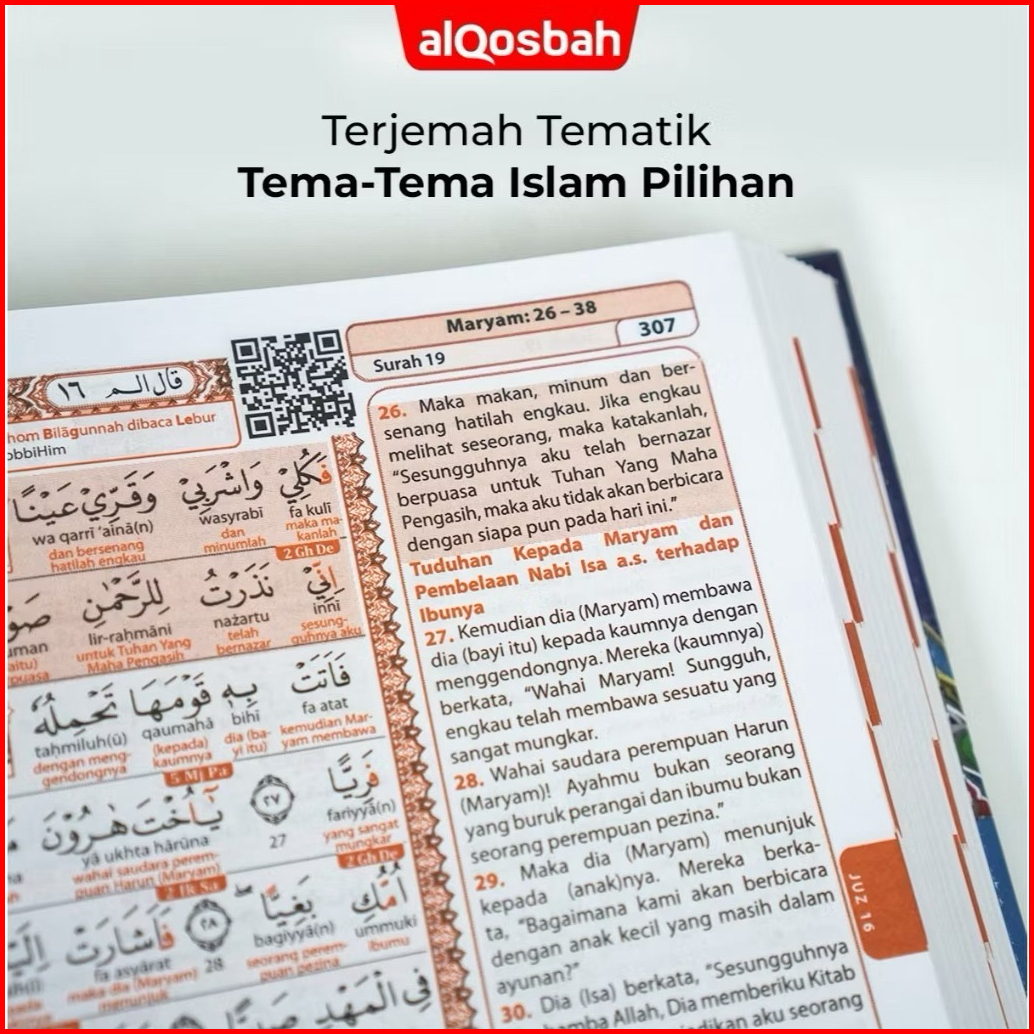 alQosbah
Terjemah Tematik
Tema-Tema Islam Pilihan
Maryam: 26 – 38
Surah 19
307
قال الم ١٦
hom Bilāgunnah dibaca Lebur
obbiHim
فَكُلِيْ وَاشْرَبِيْ وَقَرِّيْ عَيْنًا
fa kulī wasyrabī wa qarrī ‘ainā(n)
maka ma-
kanlah
dan
minumlah
dan bersenang
hatilah engkau
2 Gh De
اِنِّيْ نَذَرْتُ لِلرَّحْمٰنِ
innī nażartu lir-raḥmāni
sesung-
guhnya aku
telah
bernazar
untuk Tuhan Yang
Maha Pengasih
فَاَتَتْ بِهٖ قَوْمَهَا تَحْمِلُهٗ
fa atat bihī qaumahā taḥmiluh(ū)
kemudian Mar-
yam membawa
dia (ba-
yi itu)
(kepada)
kaumnya
dengan meng-
gendongnya
5 Mj Pa
فَرِيًّا ٢٧ يٰٓاُخْتَ هٰرُوْنَ
fariyyā(n) 27 yā ukhta hārūna
yang sangat
mungkar
wahai saudara perem-
puan Harun (Maryam)
2 Gh De
اُمُّكِ بَغِيًّا ٢٨ فَاَشَارَتْ
ummuki bagiyyā(n) 28 fa asyārat
ibumu
seorang perem-
puan pezina
maka dia (Maryam)
menunjuk
فِى الْمَهْدِ
26. Maka makan, minum dan ber-
senang hatilah engkau. Jika engkau
melihat seseorang, maka katakanlah,
“Sesungguhnya aku telah bernazar
berpuasa untuk Tuhan Yang Maha
Pengasih, maka aku tidak akan berbicara
dengan siapa pun pada hari ini.”
Tuduhan Kepada Maryam dan
Pembelaan Nabi Isa a.s. terhadap
Ibunya
27. Kemudian dia (Maryam) membawa
dia (bayi itu) kepada kaumnya dengan
menggendongnya. Mereka (kaumnya)
berkata, “Wahai Maryam! Sungguh,
engkau telah membawa sesuatu yang
sangat mungkar.
28. Wahai saudara perempuan Harun
(Maryam)! Ayahmu bukan seorang
yang buruk perangai dan ibumu bukan
seorang perempuan pezina.”
29. Maka dia (Maryam) menunjuk
kepada (anak)nya. Mereka berka-
ta, “Bagaimana kami akan berbicara
dengan anak kecil yang masih dalam
ayunan?”
30. Dia (Isa) berkata, “Sesungguhnya
amba Allah, Dia memberiku Kitab
dikan aku seorang
JUZ 16